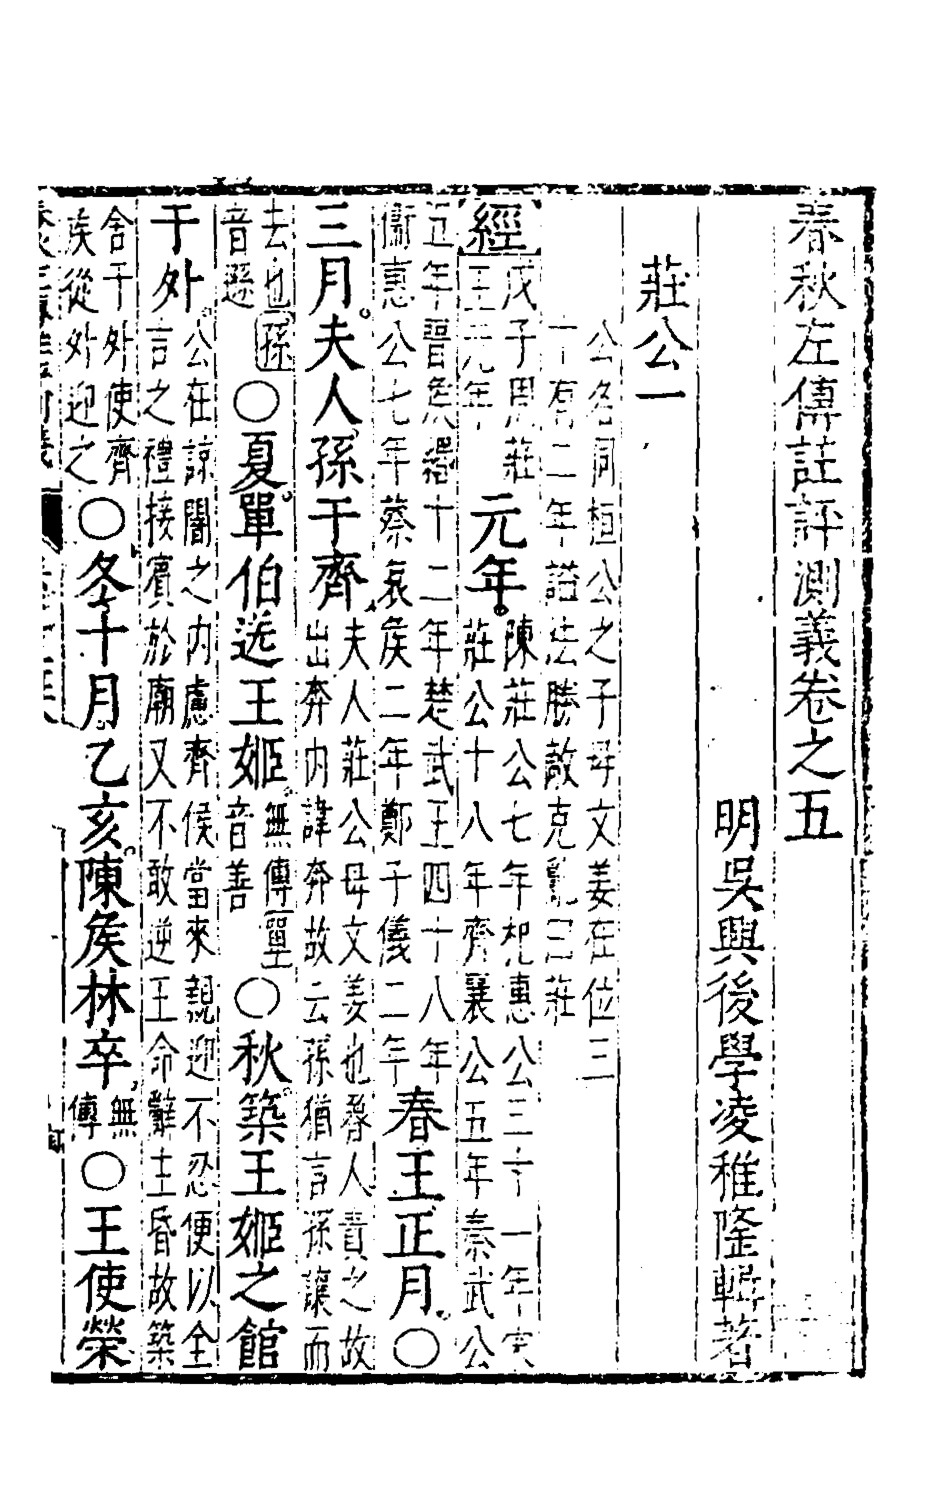 春秋左傳註評測義卷之五
明吳興後學凌稚隆輯著
莊公一
公名同桓公之子母文姜在位三
十有二年謚法勝敵克亂曰莊
經
戊子周莊
王元年
元年。
陳莊公七年杞惠公三十一年宋
莊公十八年齊襄公五年秦武公
五年晉侯緡十二年楚武王四十八年
衞惠公七年蔡哀侯二年鄭子儀二年
春王正月。〇
三月。夫人孫于齊。
夫人莊公母文姜也魯人責之故
出奔內諱奔故云孫猶言孫讓而
去也孫
音遜
〇夏。單伯送王姬。
無傳單
音善
〇秋。築王姬之館
于外。
公在諒闇之內慮齊侯當來親迎不忍便以全
言之禮接賓於廟又不敢逆王命辭主昏故築
舍于外使齊
侯從外迎之
〇冬十月乙亥。陳侯林卒。
無
傳
〇王使榮